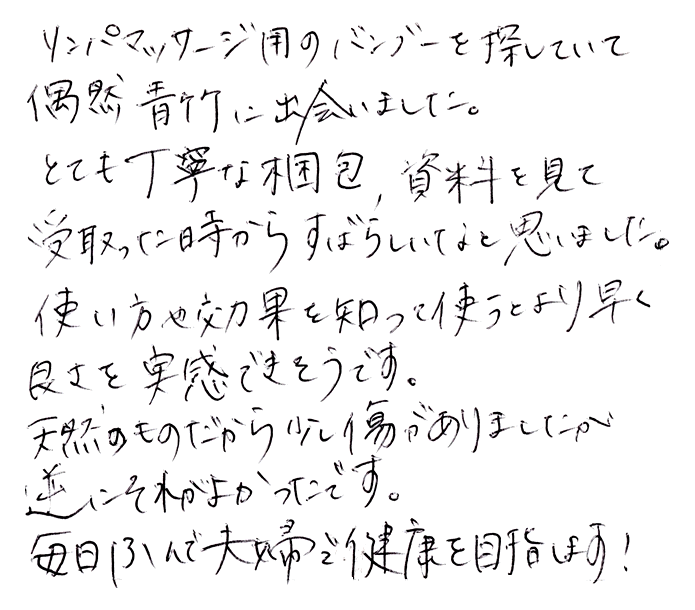 リンパマッサージ用のバンブーを探していて
偶然青竹に出会いました。
とても丁寧な梱包、資料を見て
受取った時からすばらしいなと思いました。
使い方や効果を知って使うとより早く
良さを実感できそうです。
天然のものだから少し傷がありましたが
逆にそれがよかったです。
毎日ふんで夫婦で健康を目指します!